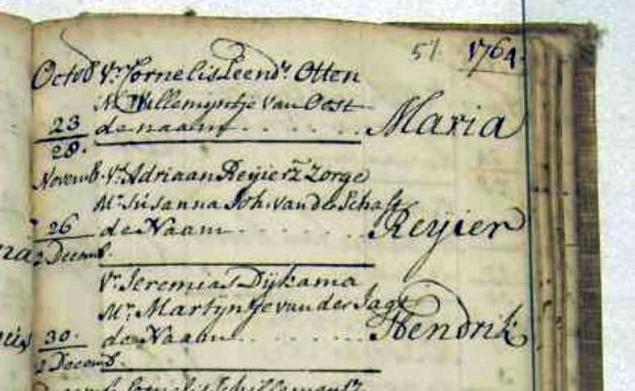 51 1764.
Octob Vr Cornelis Leendr. Otten
Mr Willemyntje van Oost
23 de naam . . . . . . Maria
28.
Novemb. Vr. Adriaan Reyierz Zorge
Mr. Susanna Joh. van der Schaft
26 de Naam . . . . . . Reyier
2 Decemb.
Vr. Jeremias Dijkama
Mr. Martyntje van der Jagt
30. de Naam . . . . . Hendrik
2 Decemb.